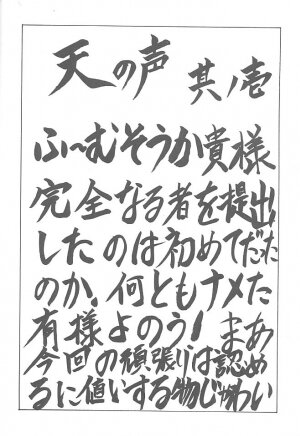 天の声 其ノ壱
ふ〜むそうか貴様
完全なる者を提出
したのは初めてだった
のか。何ともナメた
有様よのう！まあ
今回の頑張りは認め
るに値いする物じゃわい